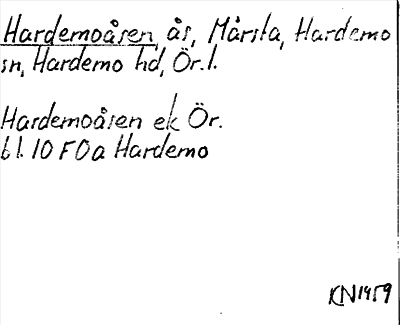 Hardemoåsen, ås, Mårsta, Hardemo
sn, Hardemo hd, Ör.l.
Hardemoåsen ek Ör.
bl. 10 F0a Hardemo
KN1959